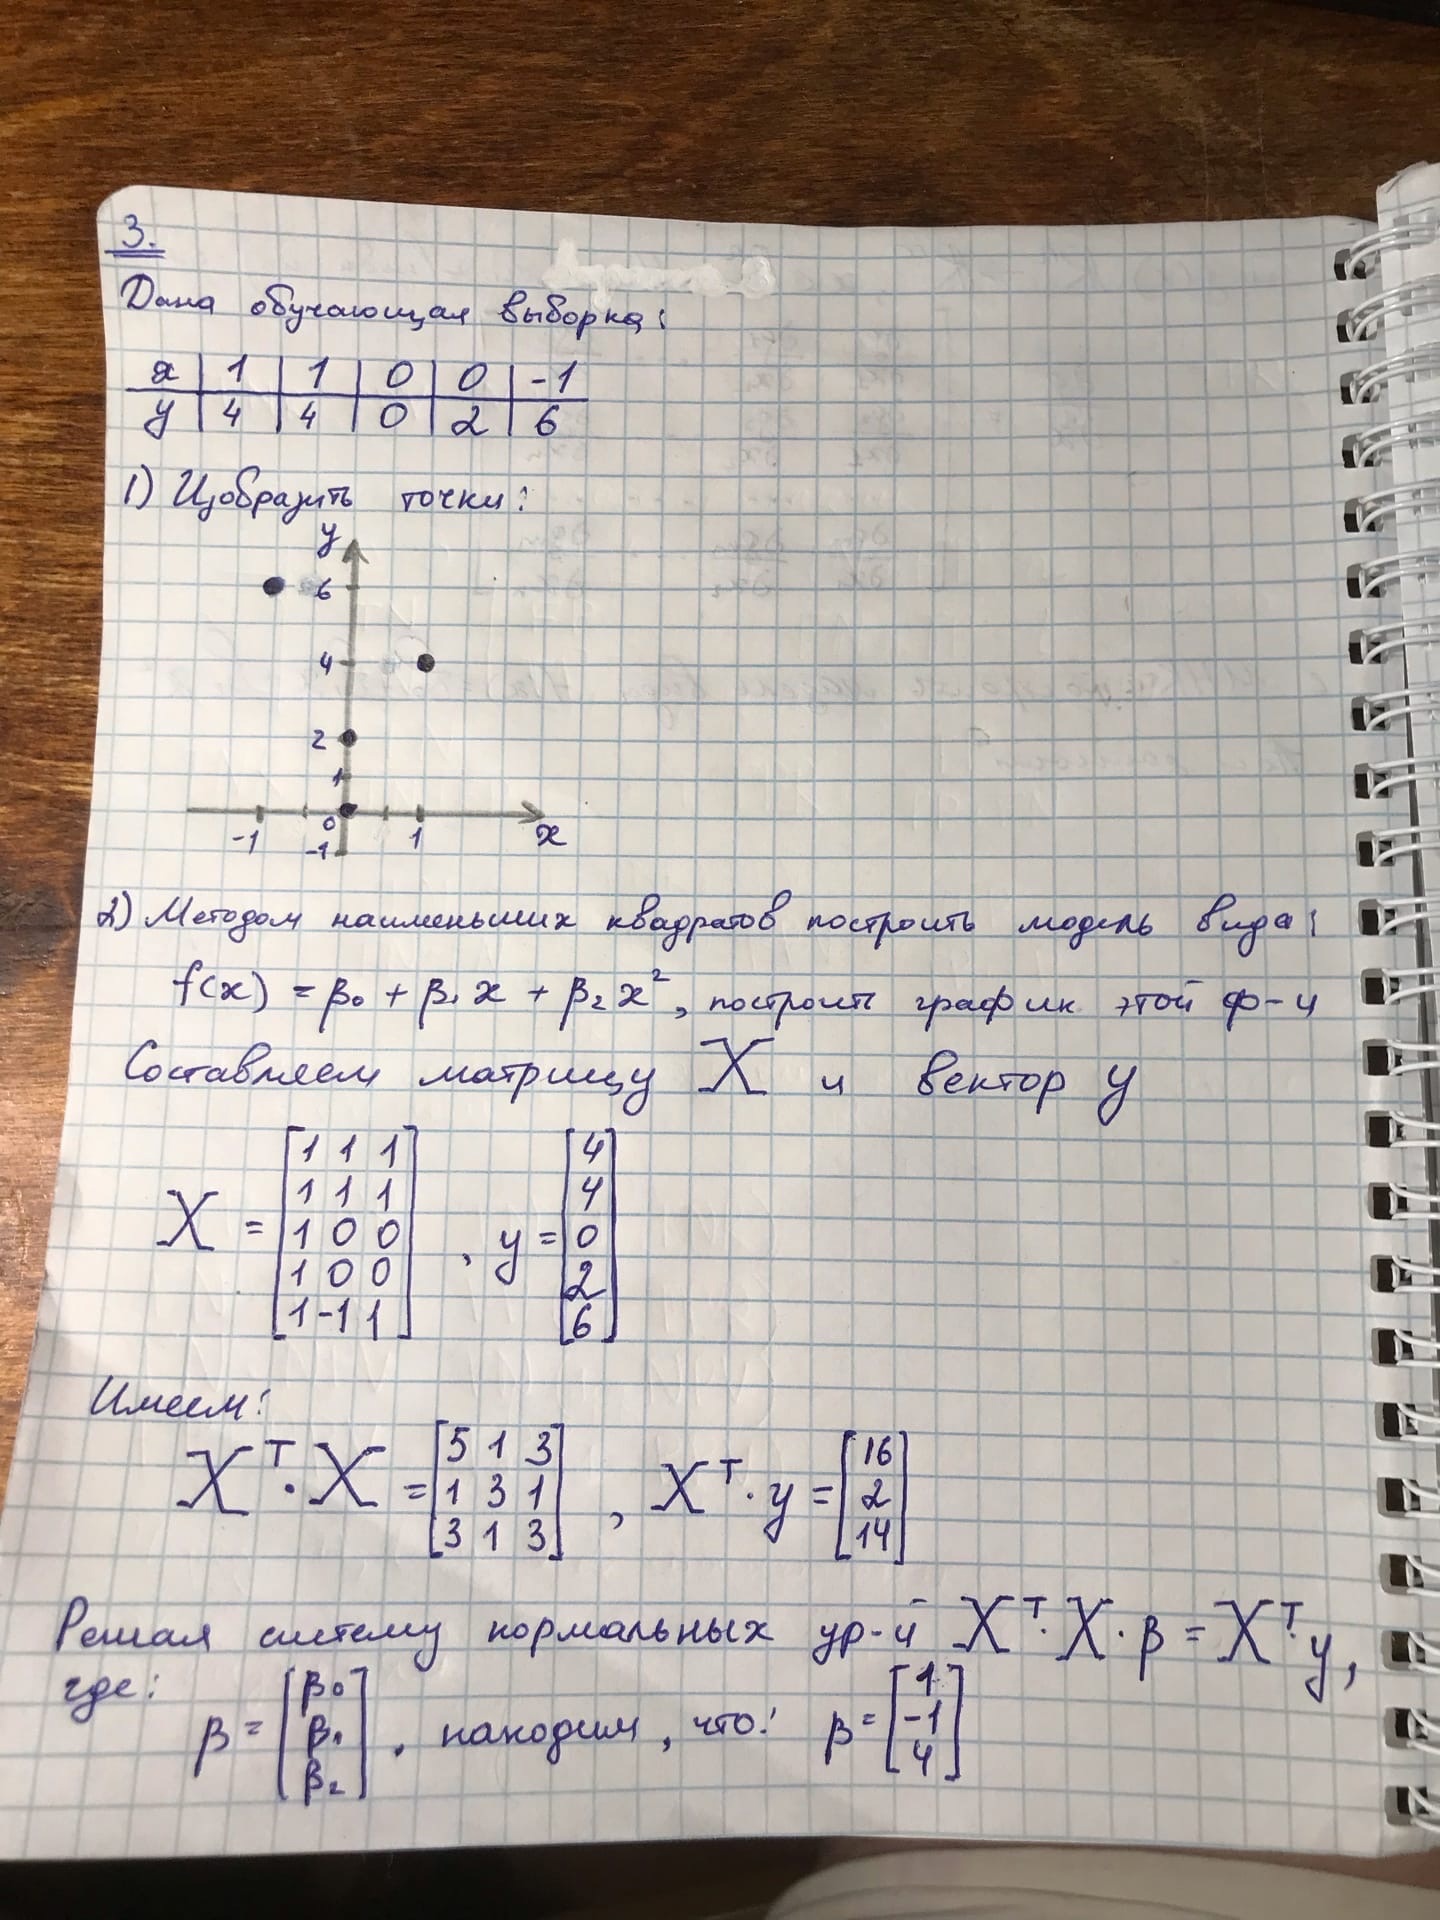 3.
Дана обучающая выборка:
x | 1 | 1 | 0 | 0 | -1
y | 4 | 4 | 0 | 2 | 6
1) Изобразить точки:
y
6
4
2
1
0
-1 1 x
-1
2) Методом наименьших квадратов построить модель вида:
f(x) = β₀ + β₁x + β₂x², построить график этой ф-и
Составляем матрицу X и вектор y
X = [1 1 1; 1 1 1; 1 0 0; 1 0 0; 1 -1 1], y = [4; 4; 0; 2; 6]
Имеем:
Xᵀ·X = [5 1 3; 1 3 1; 3 1 3], Xᵀ·y = [16; 2; 14]
Решая систему нормальных ур-й Xᵀ·X·β = Xᵀ·y,
где:
β = [β₀; β₁; β₂], находим, что: β = [1; -1; 4]